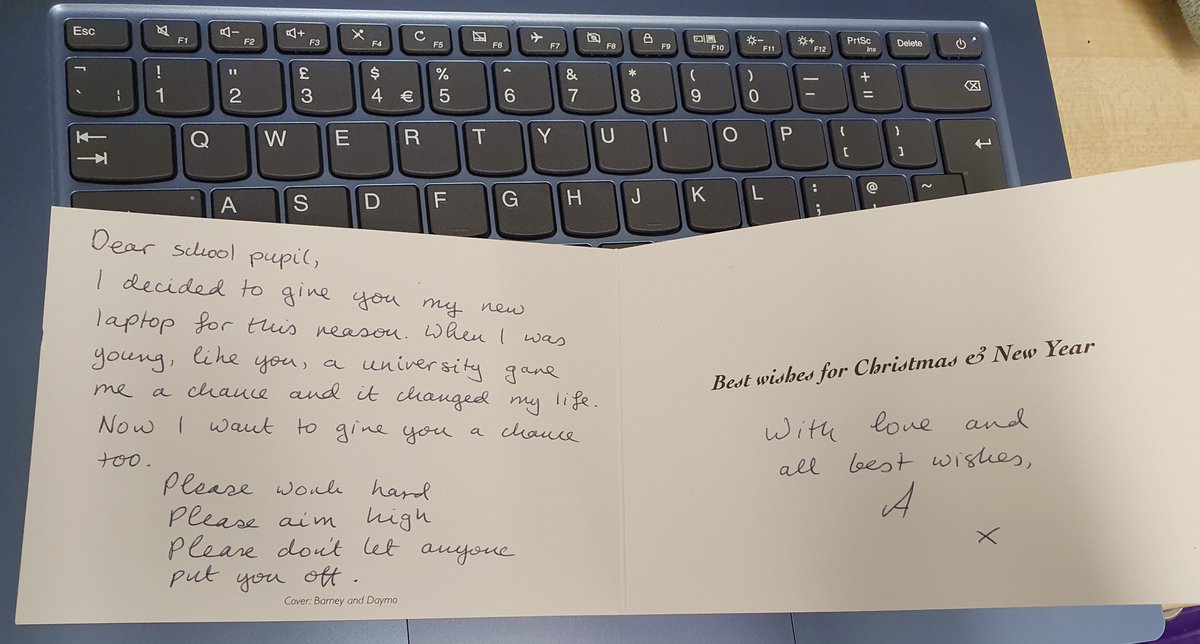 Esc F1 F2 F3 F4 F5 F6 F7 F8 F9 F10 F11 F12 PrtSc Ins Delete
¬ ` ¦ ! 1 " 2 £ 3 $ 4 € % 5 ^ 6 & 7 * 8 ( 9 ) 0 — - + =
Q W E R T Y U I O P { [ } ]
A S D F G H J K L : ; @ ' ~
Dear school pupil,
I decided to give you my new
laptop for this reason. When I was
young, like you, a university gave
me a chance and it changed my life.
Now I want to give you a chance
too.
Please work hard
Please aim high
Please don't let anyone
put you off.
Cover: Barney and Daymo
Best wishes for Christmas & New Year
With love and
all best wishes,
A
x